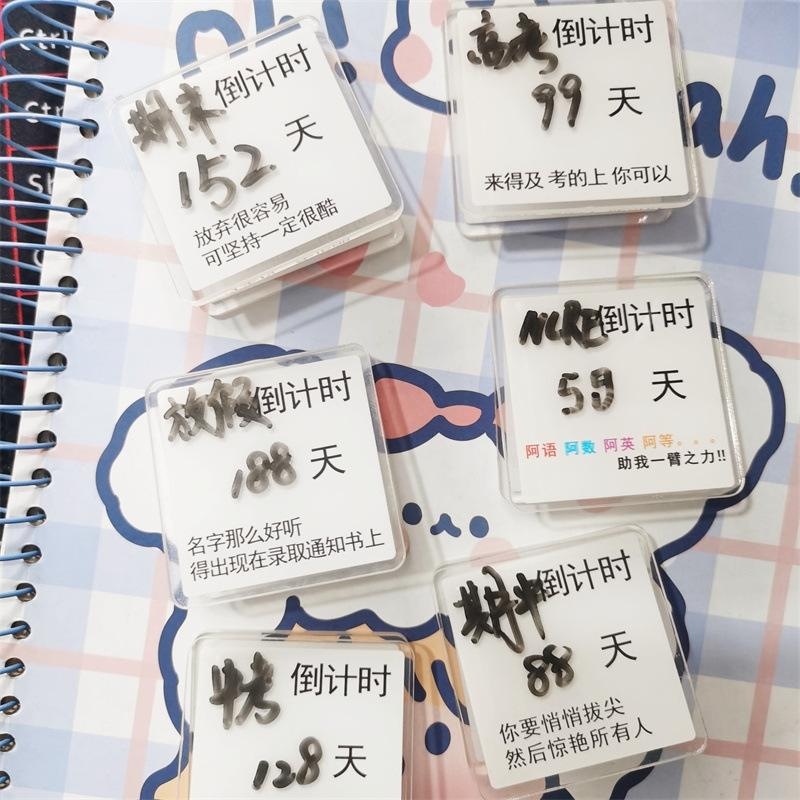 Ctrl
期末倒计时
152天
放弃很容易
可坚持一定很酷
高考倒计时
99天
来得及 考的上 你可以
ah!
放假倒计时
188天
名字那么好听
得出现在录取通知书上
NCRE倒计时
58天
阿语 阿数 阿英 阿等。。。
助我一臂之力!!
中考倒计时
128天
期中倒计时
88天
你要悄悄拔尖
然后惊艳所有人